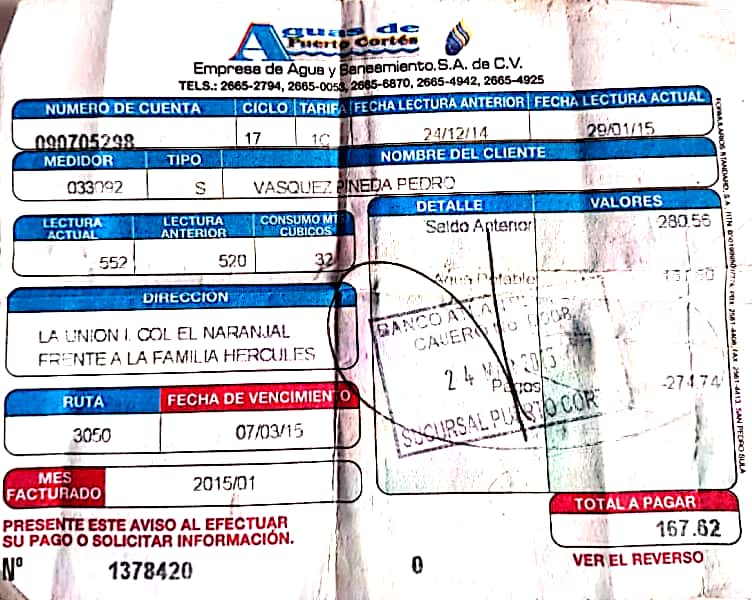 Aguas de
Puerto Cortés
Empresa de Agua y Saneamiento, S.A. de C.V.
TELS.: 2665-2794, 2665-0053, 2665-6870, 2665-4942, 2665-4925
NUMERO DE CUENTA CICLO TARIFA FECHA LECTURA ANTERIOR FECHA LECTURA ACTUAL
090705298 17 1C 24/12/14 29/01/15
MEDIDOR TIPO NOMBRE DEL CLIENTE
033092 S VASQUEZ PINEDA PEDRO
LECTURA ACTUAL LECTURA ANTERIOR CONSUMO MTS CUBICOS
552 520 32
DETALLE VALORES
Saldo Anterior 280.56
Agua Potable
Pagos -274.74
BANCO
CAJERO
24
SUCURSAL PUERTO COR
DIRECCIÓN
LA UNION I. COL EL NARANJAL
FRENTE A LA FAMILIA HERCULES
RUTA FECHA DE VENCIMIENTO
3050 07/03/15
MES FACTURADO 2015/01
TOTAL A PAGAR
167.62
PRESENTE ESTE AVISO AL EFECTUAR
SU PAGO O SOLICITAR INFORMACIÓN.
VER EL REVERSO
Nº 1378420 0